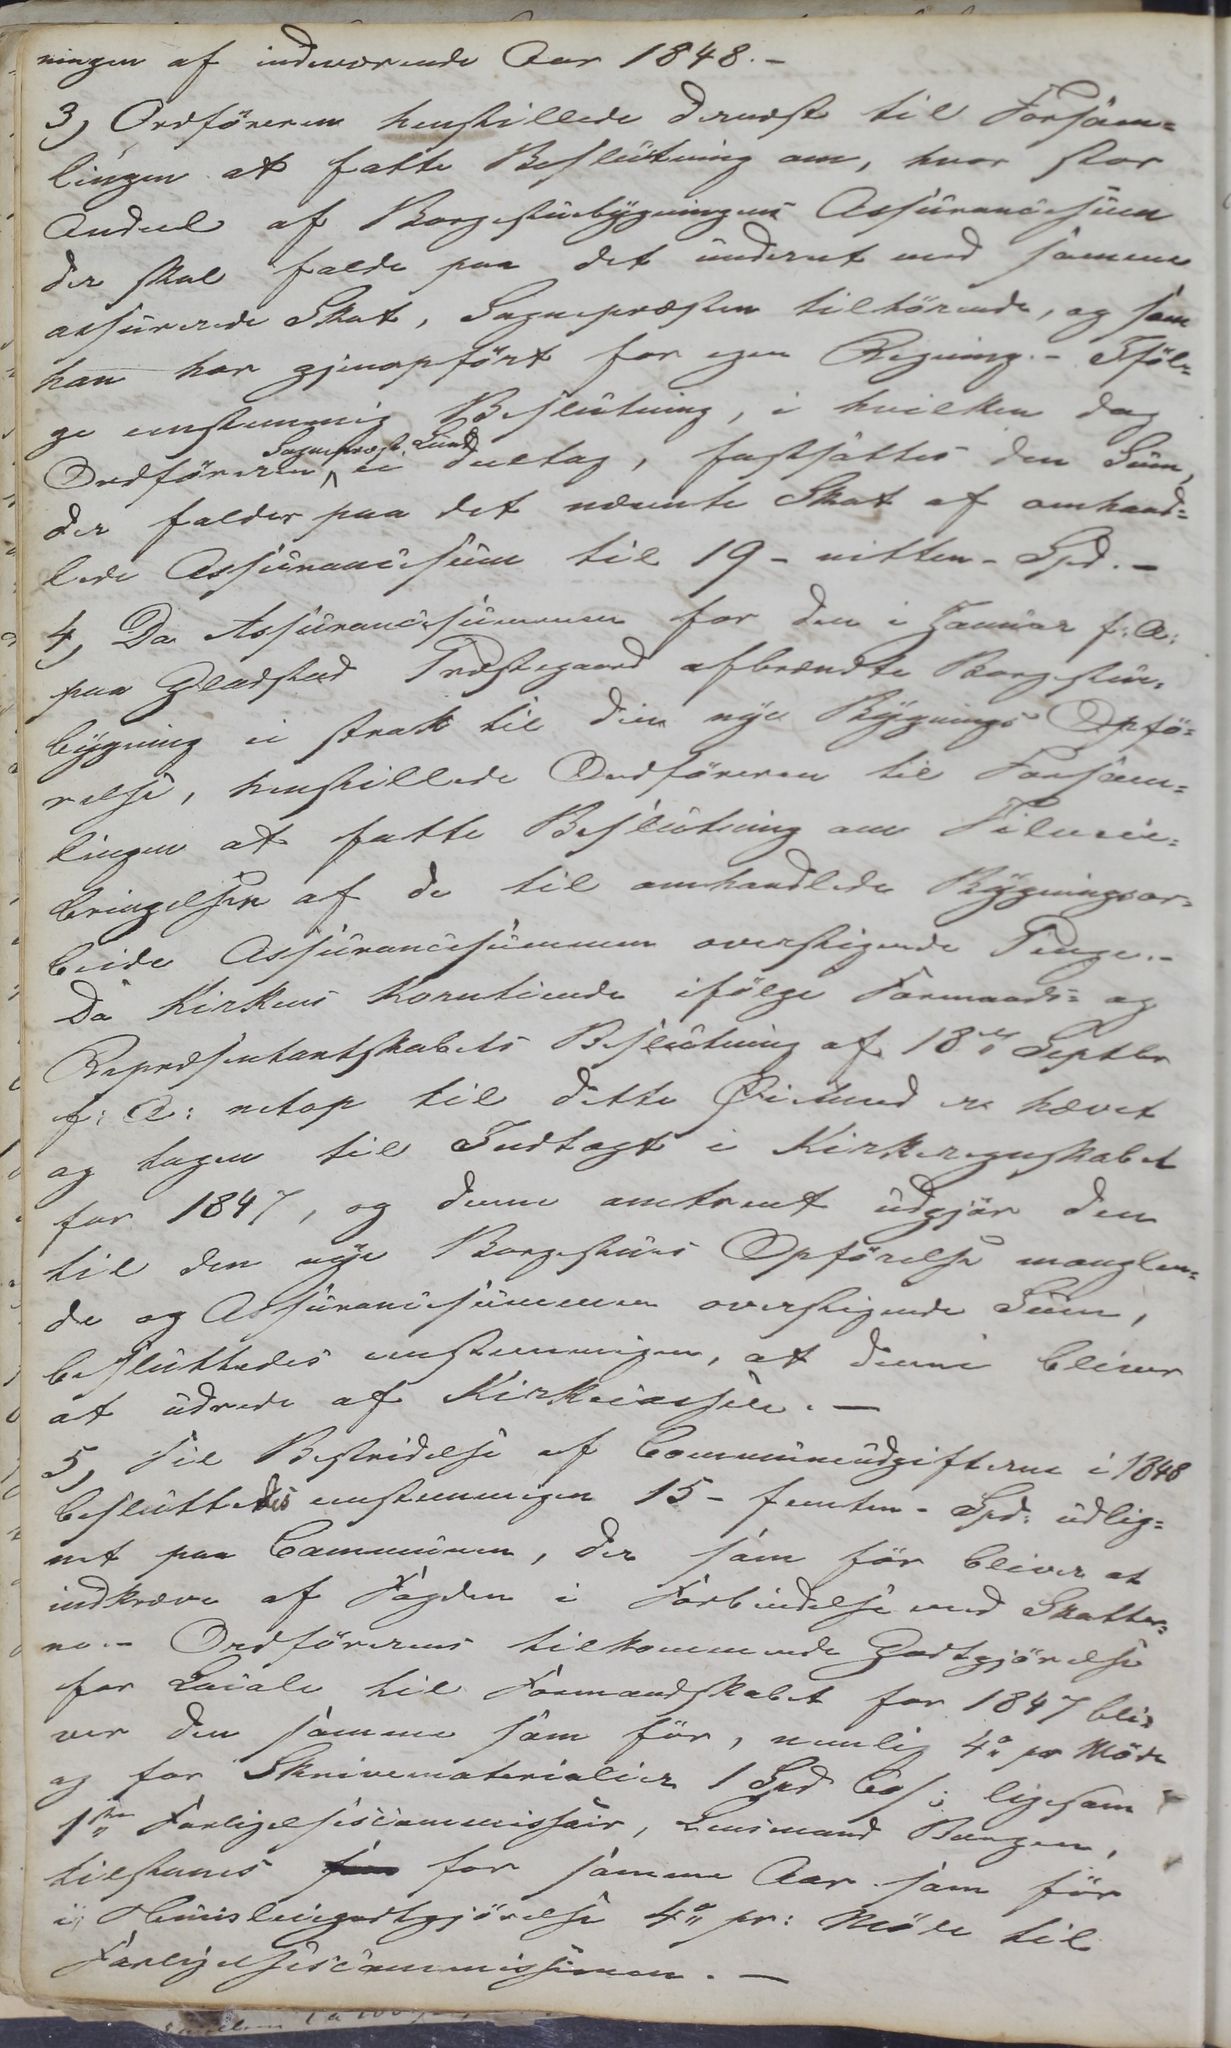 ningen af indeværende Aar 1848.-
3, Ordföreren henstillede dernæst til Forsam=
lingen at fatte Beslutning om, hvor stor
Andeel af Borgestuebygningens Assurancesum
der skal falde paa det underet med samme
assurerede Skot, Sognepræsten tilhörende, og som
han har gjenopfört for egen Regning.- Iföl=
ge eenstemmig Beslutning, i hvilken dog
Ordföreren, Sognepræst Lund ei deeltog, fastsattes den Sum,
der falder paa det nævnte Skot af omhand=
lede Assurancesum til 19 - nitten - Spd.-
4, Da Assurancesummen for den i Januar f: A:
paa Gladstad Præstegaard afbrændte Borgestue=
bygning ei strakk til den nye Bygnings Opfö=
relse, henstillede Ordföreren til Forsam=
lingen at fatte Beslutning om Tilveie=
bringelsen af de til omhandlede Bygningsar=
beide Assurancesummen overstigende Penge.-
Da Kirkens Korntiende ifölge Formands= og
Repræsentantskabets Beslutning af 18de Septbr
f: A: netop til dette Öiemed er hævet
og tagen til Indtægt i Kirkeregnskabet
for 1847, og denne omtrent udgjör den
til den nye Borgestues Opförelse manglen=
de og Assurancesummen overstigende Sum,
besluttedes eenstemmigen, at denne bliver
at udrede af Kirkecassen.-
5, Til Bestridelse af Communeudgifterne i 1848
besluttedes eenstemmigen 15 - femten - Spd: udlig=
net paa Communen, der som för bliver at
indkræve af Fogden i Forbindelse med Skatter=
ne.- Ordförerens tilkommende Godtgjörelse
for Locale til Formandskabet for 1847 bli=
ver den samme som för, nemlig 4 pr Möde
og for Skrivematerialier 1 Spd ligesom
1ste Forligelsescommissair, Lensmand Borgen,
tilstaaes for samme Aar som för
i Huusleiegodtgjörelse 4 pr: Möde til
Forligelsescommissionen.-